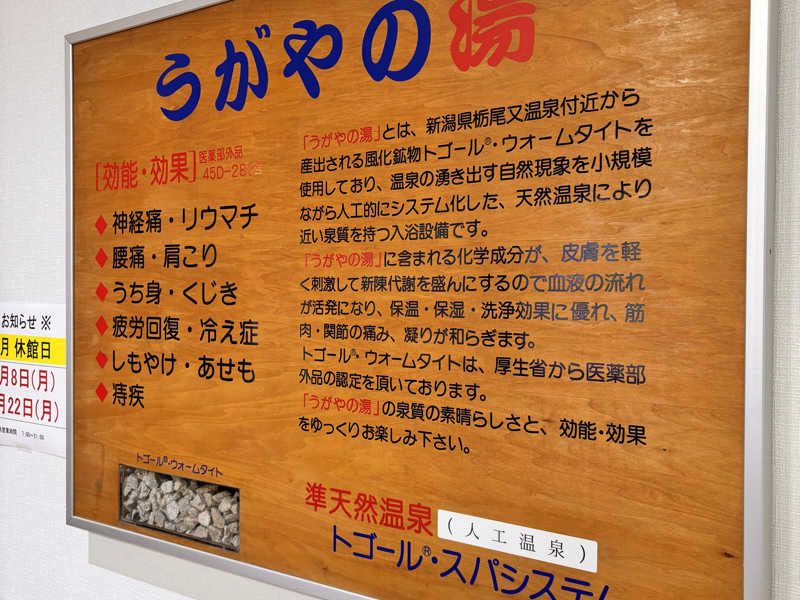 うがやの湯
[効能・効果]
医薬部外品
45D-28
◆神経痛・リウマチ
◆腰痛・肩こり
◆うち身・くじき
◆疲労回復・冷え症
◆しもやけ・あせも
◆痔疾
トゴール®・ウォームタイト
「うがやの湯」とは、新潟県栃尾又温泉付近から
産出される風化鉱物トゴール®・ウォームタイトを
使用しており、温泉の湧き出す自然現象を小規模
ながら人工的にシステム化した、天然温泉により
近い泉質を持つ入浴設備です。
「うがやの湯」に含まれる化学成分が、皮膚を軽
く刺激して新陳代謝を盛んにするので血液の流れ
が活発になり、保温・保湿・洗浄効果に優れ、筋
肉・関節の痛み、凝りが和らぎます。
トゴール®・ウォームタイトは、厚生省から医薬部
外品の認定を頂いております。
「うがやの湯」の泉質の素晴らしさと、効能・効果
をゆっくりお楽しみ下さい。
準天然温泉(人工温泉)
トゴール®・スパシステム
お知らせ ※
月 休館日
月8日(月)
月22日(月)